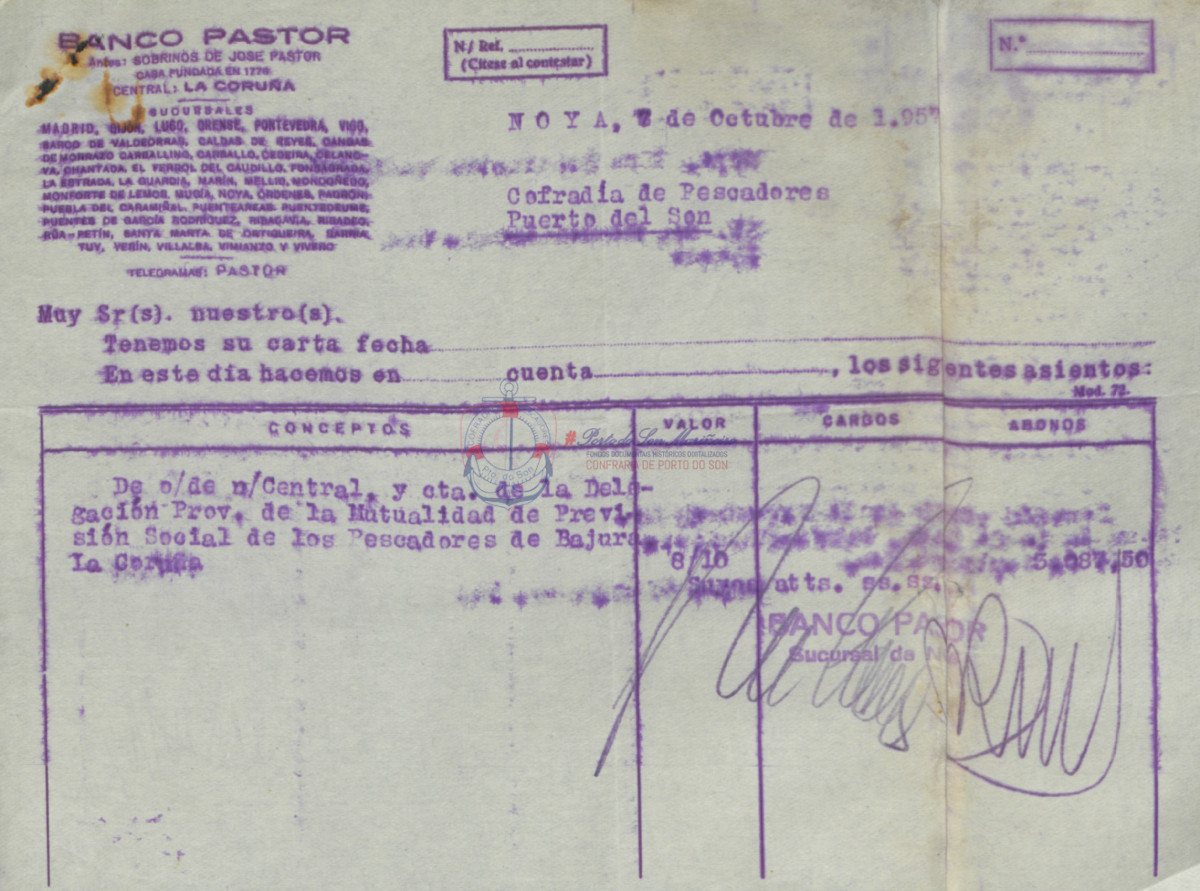 BANCO PASTOR
Antes: SOBRINOS DE JOSE PASTOR
CASA FUNDADA EN 1776
CENTRAL: LA CORUÑA
SUCURSALES
MADRID, GIJON, LUGO, ORENSE, PONTEVEDRA, VIGO,
BARCO DE VALDEORRAS, CALDAS DE REYES, CANGAS
DE MORRAZO CARBALLINO, CARBALLO, CEDEIRA, CELANO-
VA, CHANTADA, EL FERROL DEL CAUDILLO, FONSAGRADA,
LA ESTRADA, LA GUARDIA, MARIN, MELLID, MONDOÑEDO,
MONFORTE DE LEMOS, MUGIA, NOYA, ORDENES, PADRÓN,
PUEBLA DEL CARAMIÑAL, PUENTEAREAS, PUENTEDEUME,
PUENTES DE GARCÍA RODRÍGUEZ, RIBADAVIA, RIBADEO,
RÚA-PETÍN, SANTA MARTA DE ORTIGUEIRA, SARRIA,
TUY, VERÍN, VILLALBA, VIMIANZO Y VIVERO
TELEGRAMAS: PASTOR
N/ Ref.
(Cítese al contestar)
N.º
NOYA, de Octubre de 1.957
Cofradía de Pescadores
Puerto del Son
Muy Sr(s). nuestro(s).
Tenemos su carta fecha
En este día hacemos en cuenta , los sigentes asientos:
Mod. 72-
CONCEPTOS VALOR CARGOS ABONOS
# Porto do Son Mariñeiro
FONDOS DOCUMENTAIS HISTÓRICOS DIXITALIZADOS
CONFRARÍA DE PORTO DO SON
Pto. do Son
De o/de n/Central, y cta. de la Dele-
gación Prov. de la Mutualidad de Previ-
sión Social de los Pescadores de Bajura
La Coruña 8/10 3.087,50
Suyos atts. ss.ss.
BANCO PASTOR
Sucursal de